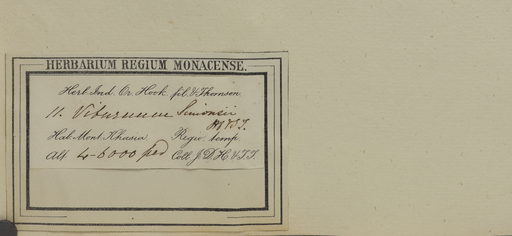 HERBARIUM REGIUM MONACENSE.
Herb. Ind. Or. Hook. fil. & Thomson.
11. Viburnum Simonsii
H f & T.
Hab. Mont. Khasia. Regio temp.
Alt. 4-6000 ped Coll. J. D. H. & T. T.